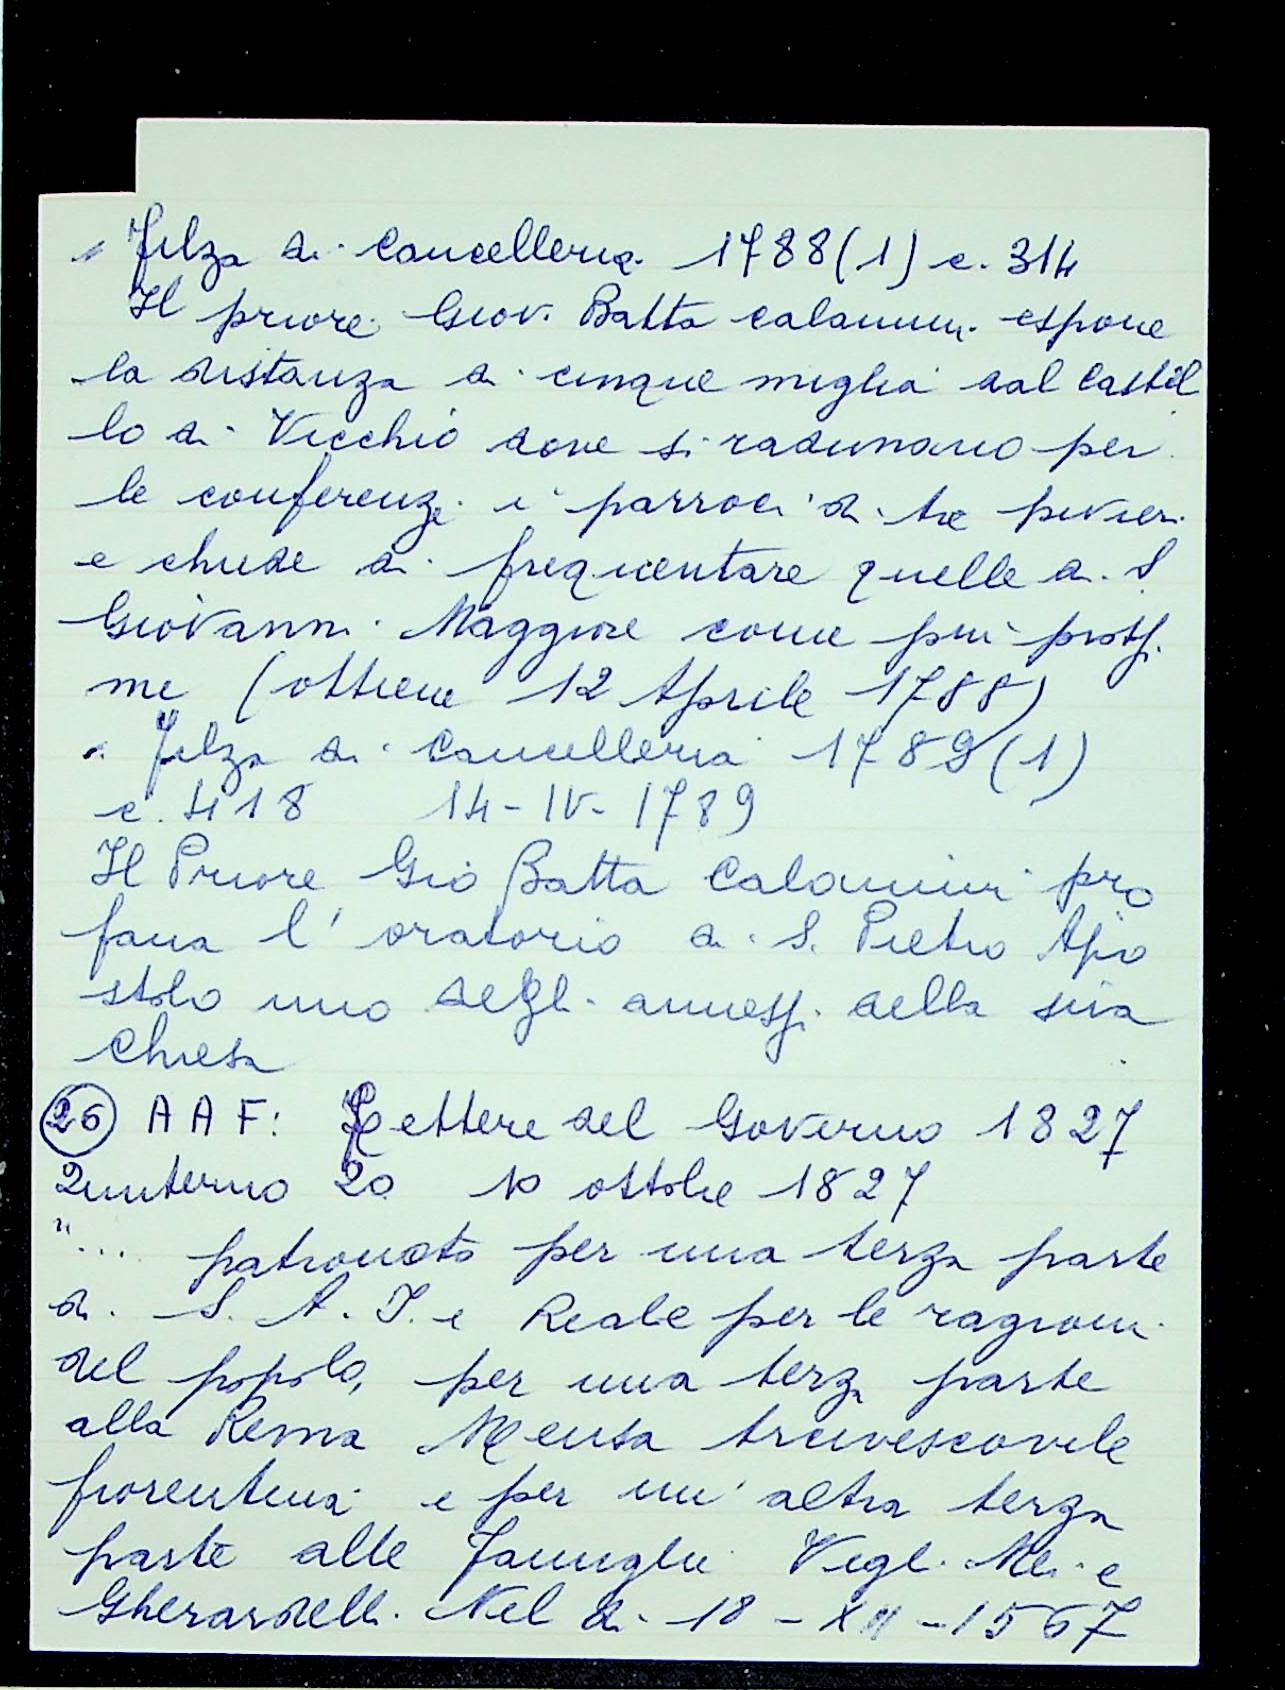 " Filza di Cancelleria 1788 (1) c. 314
Il priore Giov. Batta Calamini espone
la distanza di cinque miglia dal Castel
lo di Vicchio dove si radunano per
le conferenze i parroci di tre pivieri
e chiede di frequentare quelle di S.
Giovanni Maggiore come più prossi
me (ottiene 12 Aprile 1788)
" Filza di Cancelleria 1789 (1)
c. 418 14-IV-1789
Il Priore Gio Batta Calamini pro
fana l'oratorio di S. Pietro Apo
stolo uno degli annessi della sua
Chiesa
26 A A F: Lettere del Governo 1827
Quinterno 20 10 ottobre 1827
"... patronato per una terza parte
di S. A. I. e Reale per le ragioni
del popolo, per una terza parte
alla Rema Mensa Arcivescovile
fiorentina e per un'altra terza
parte alle Famiglie Vegli Mei e
Gherardelli. Nel dì 18-XII-1567